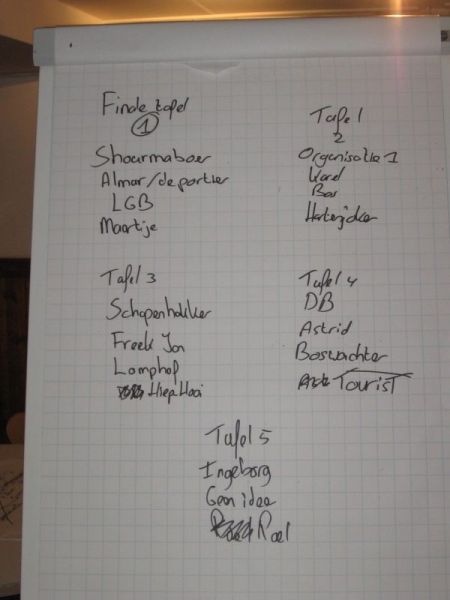 Finale tafel
1
Shoarmaboer
Almar/de portier
LGB
Maartje
Tafel
2
Organisatie 1
Ward
Bas
Hartenjicker
Tafel 3
Schapenhakker
Freek Jan
Lamphof
Hiep Hoi
Tafel 4
DB
Astrid
Boswachter
Tourist
Tafel 5
Ingeborg
Geen idee
Roel